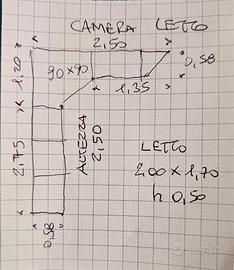 CAMERA LETTO
2,50
1,20
0,58
90x90
1,35
2,75
ALTEZZA
2,50
LETTO
200 x 1,70
h 0,50
0,58